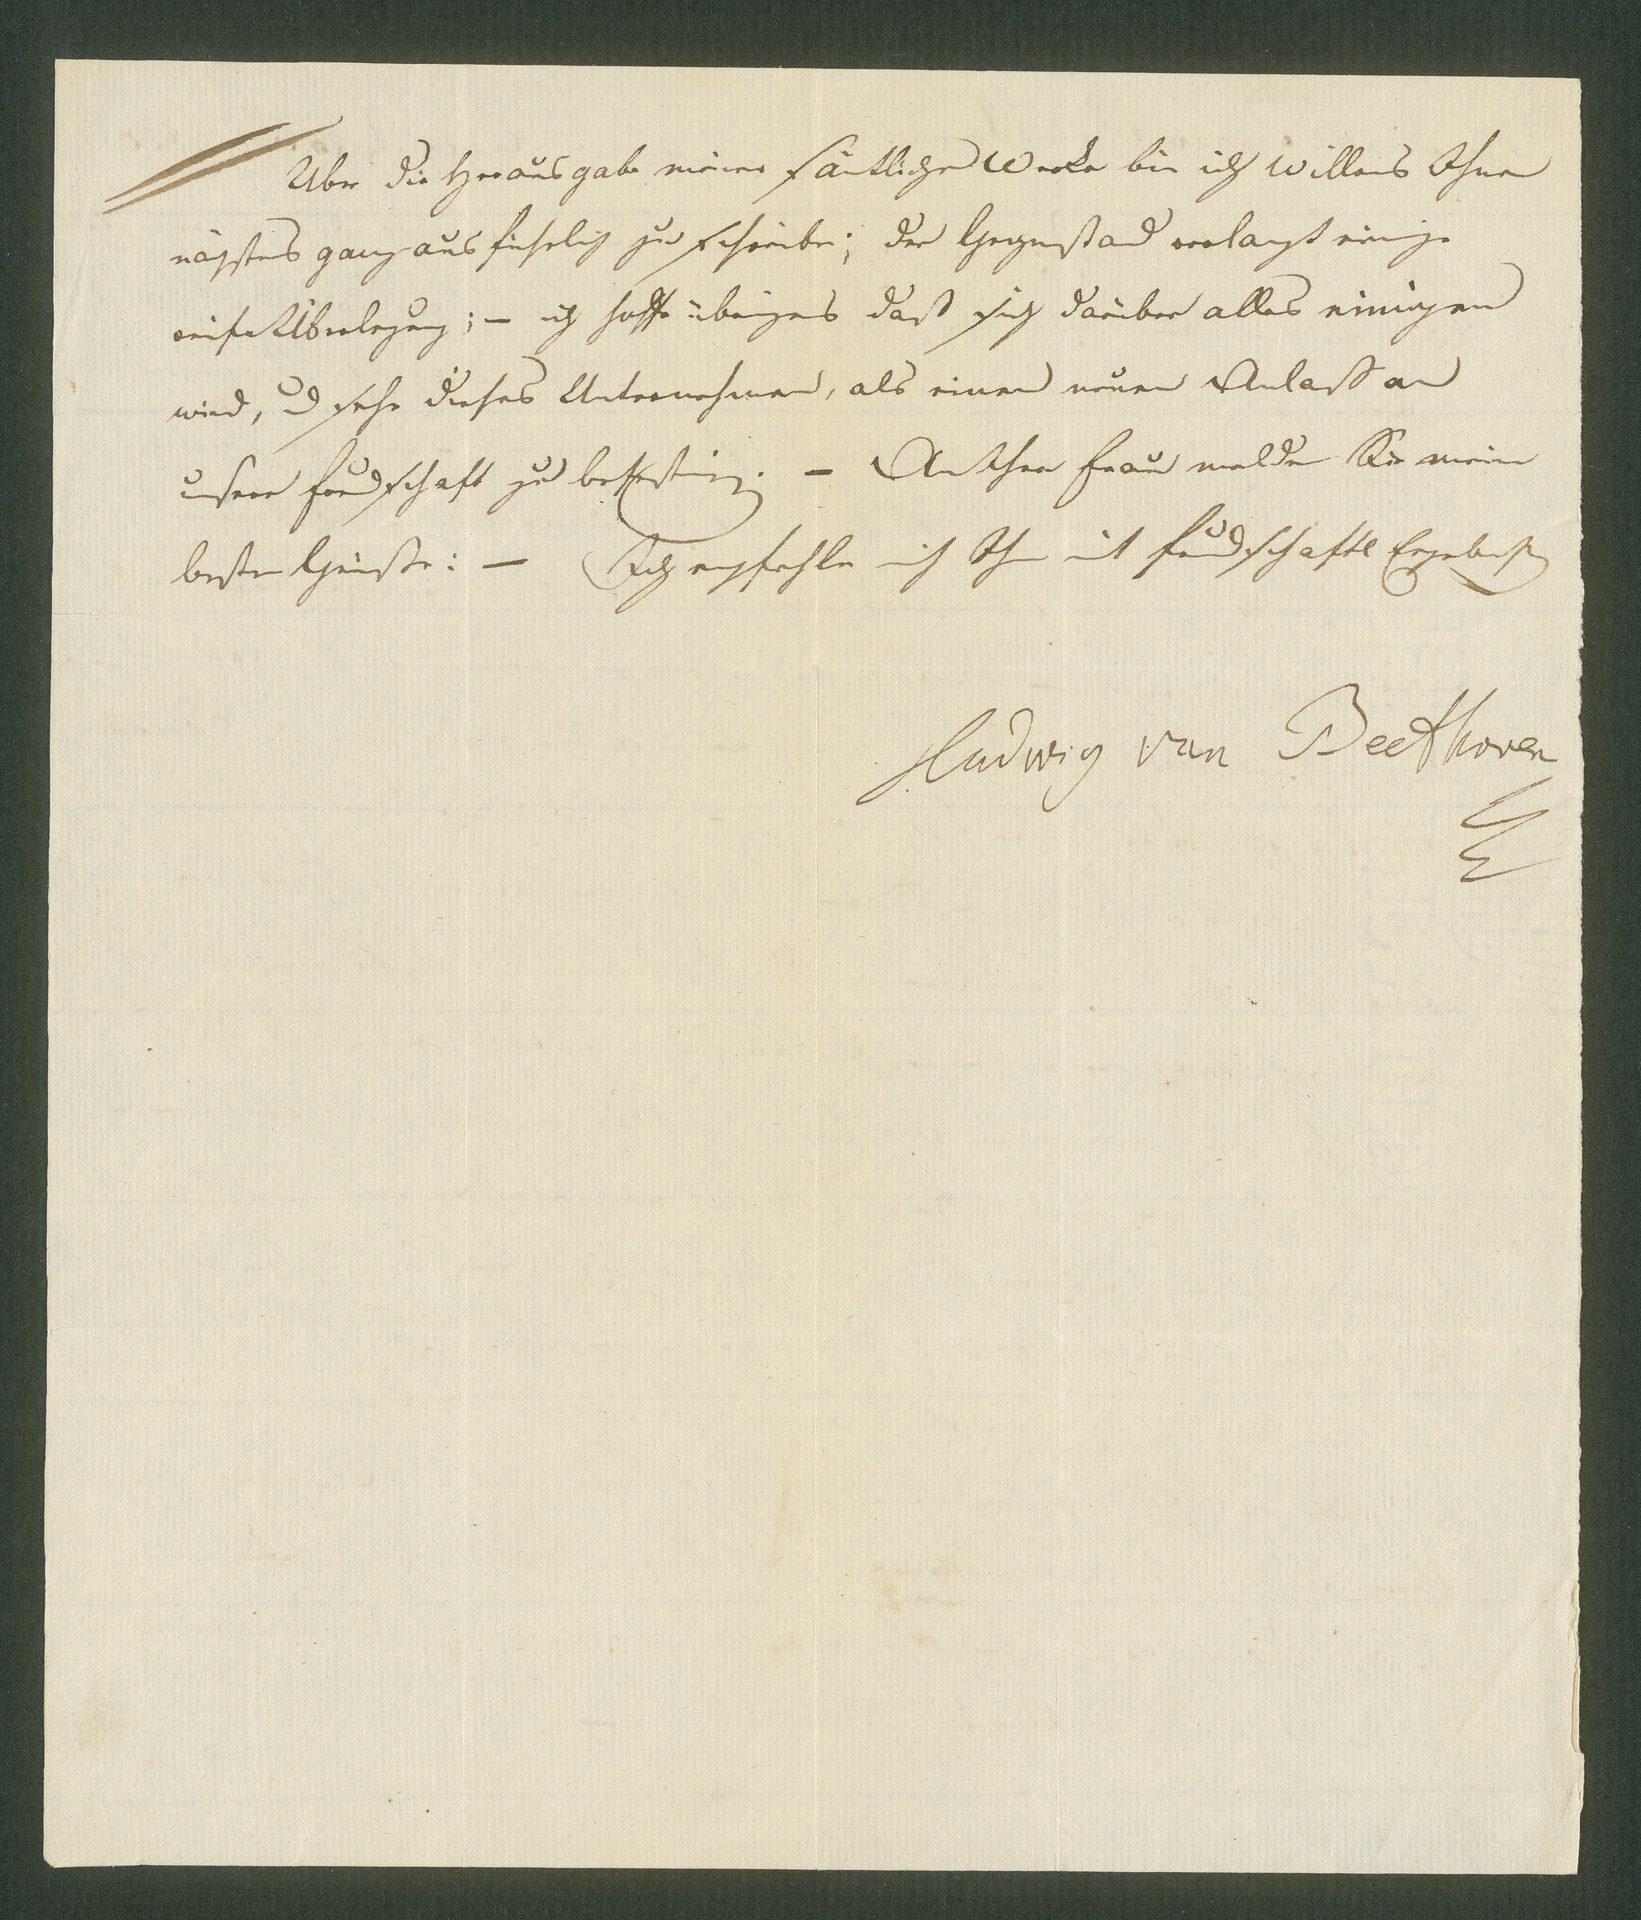 Über die Herausgabe meiner sämtlichen Werke bin ich willens Ihnen
nächstens ganz ausführlich zu schreiben; der Gegenstand verlangt einige
reife Überlegung; – ich hoffe übrigens daß sich darüber alles einigen
wird, u sehe dieses Unternehmen, als einen neuen Anlaß an
unsere Freundschaft zu befestigen. – An Ihre Frau melden Sie meine
besten Grüße: – Ich empfehle mich Ihnen mit freundschaftl Ergebenst
Ludwig van Beethoven